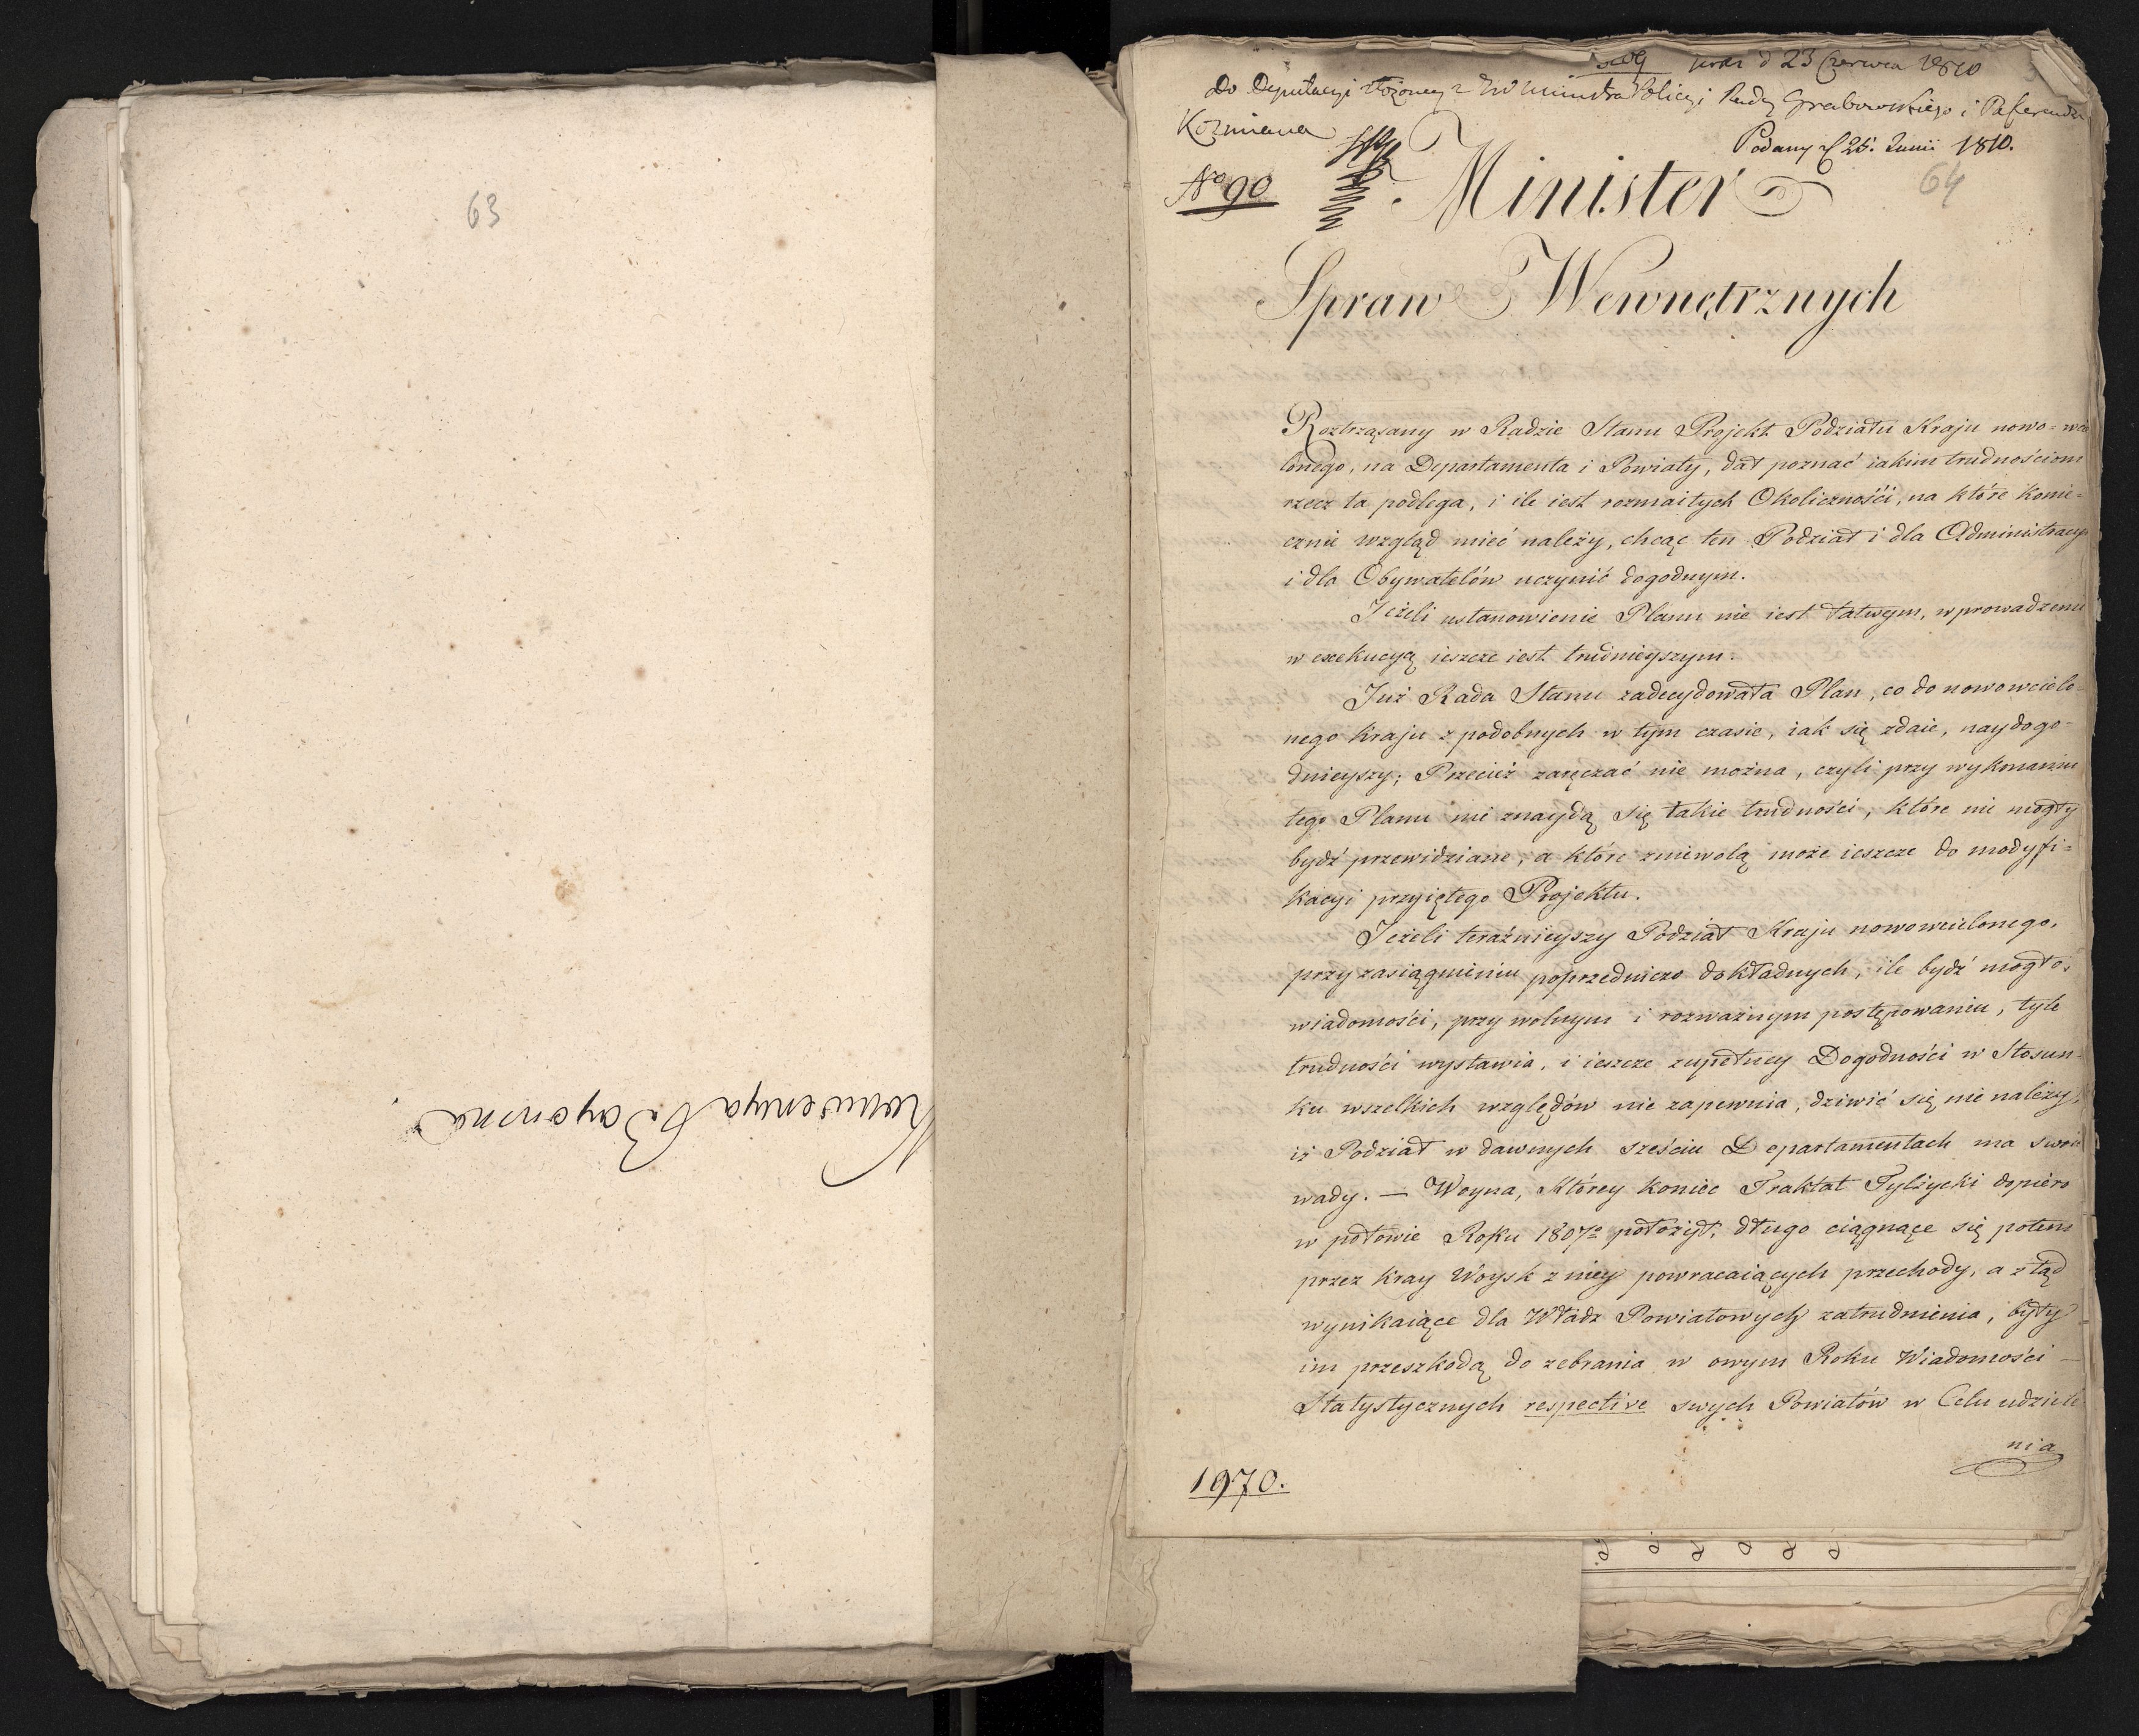 63
Konwencya Bayońska
prez d 23 Czerwca 1810
Do Deputacyi złożoney z JW Ministra Policyi Radcy Grabowskiego i Referenda
Kozmiana
Podany d 25. Junii 1810.
No 90
64
Minister
Spraw Wewnętrznych
Roztrząsany w Radzie Stanu Projekt Podziału Kraju nowo=wcie
lonego, na Departamenta i Powiaty, dał poznać iakim trudnościom
rzecz ta podlega, i ile iest rozmaitych Okoliczności, na które konie=
cznie wzgląd mieć należy, chcąc ten Podział i dla Administracyi
i dla Obywatelów uczynić dogodnym.
Jeżeli ustanowienie Planu nie iest łatwym, wprowadzenie
w exekucyą ieszcze iest trudnieyszym.
Już Rada Stanu zadecydowała Plan, co do nowowcielo=
nego kraju z podobnych w tym czasie, iak się zdaie, naydogo=
dnieyszy; Przecież zaręczać nie można, czyli przy wykonaniu
tego Planu nie znaydą się takie trudności, które nie mogły
bydź przewidziane, a które zniewolą może ieszcze do modyfi=
kacyi przyiętego Projektu.
Jeżeli teraźnieyszy Podział Kraju nowowcielonego,
przy zasiągnieniu poprzedniczo dokładnych, ile bydź mogło,
wiadomości, przy wolnym i rozważnym postępowaniu, tyle
trudności wystawia, i ieszcze zupełney Dogodności w Stosun=
ku wszelkich względów nie zapewnia, dziwić się nie należy,
iż Podział w dawnych sześciu Departamentach ma swoie
wady. — Woyna, którey koniec Traktat Tylżycki dopiéro
w połowie Roku 1807o położył, długo ciągnące się potem
przez kray Woysk z niey powracaiących przechody, a ztąd
wynikaiące dla Władz Powiatowych zatrudnienia, były
im przeszkodą do zebrania w owym Roku Wiadomości —
Statystycznych respective swych Powiatów w Celu udziele
nia
1970.